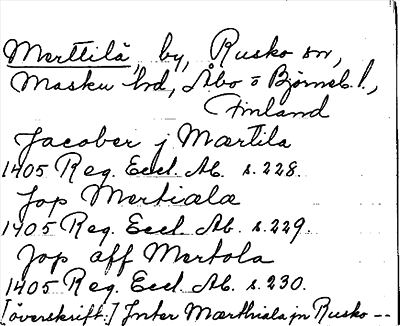 Merttilä, by, Rusko sn,
Masku hd, Åbo o Bjørneb. l.,
Finland
Jacober j Mærtila
1405 Reg. Eccl. Ab. s. 228.
Jop Mertiala
1405 Reg. Eccl. Ab. s. 229.
Jop aff Mertola
1405 Reg. Eccl. Ab. s. 230.
[överskrift:] Inter Mærthiala jn Rusko --